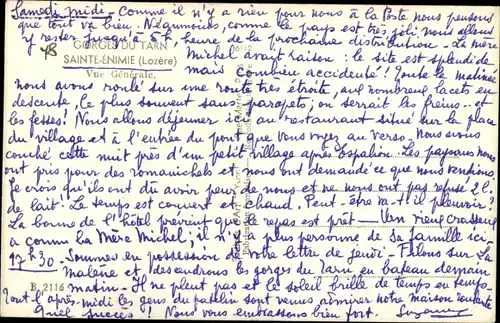 Samedi midi - Comme il n'y a rien pour nous à la Poste nous pensons
que tout va bien. Néanmoins, comme le pays est très joli, nous allons
y rester jusqu'à 5h, heure de la prochaine distribution - La mère
GORGES DU TARN
48 SAINTE-ENIMIE (Lozère)
Vue Générale.
Michel avait raison : le site est splendide
mais combien accidenté ! Toute la matinée
nous avons roulé sur une route très étroite, aux nombreux lacets en
descente, le plus souvent sans parapets; on serrait les freins.. et
les fesses ! Nous allons déjeuner au restaurant situé sur la place
du village et à l'entrée du pont que vous voyez au verso. Nous avons
couché cette nuit près d'un petit village après Espalion. Les paysans nous
ont pris pour des romanichels et nous ont demandé ce que nous vendions
Je crois qu'ils ont dû avoir peur de nous et ne nous ont pas refusé 2 l.
de lait. Le temps est couvert et chaud. Peut-être va-t-il pleuvoir ?
La bonne de l'hôtel prévient que le repas est prêt - Un vieux crasseux
a connu la Mère Michel; il n'y a plus personne de sa famille ici -
17h30 - Sommes en possession de votre lettre de jeudi - Filons sur La
Malène et descendrons les gorges du Tarn en bateau demain
B. 2116 matin - Il ne pleut pas et le soleil brille de temps en temps.
Tout l'après-midi les gens du patelin sont venus admirer notre maison roulante
Quel succès ! Nous vous embrassons bien fort. Suzanne